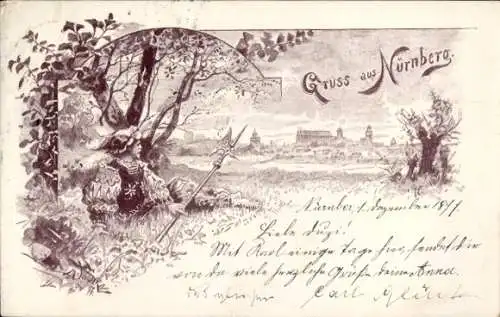 Gruss aus Nürnberg.
Nürnberg, 1. Dezember 1897.
Liebe Luzi!
Mit Karl einige Tage hier, sendet dir
von da viele herzliche Grüße deine Anna
Carl